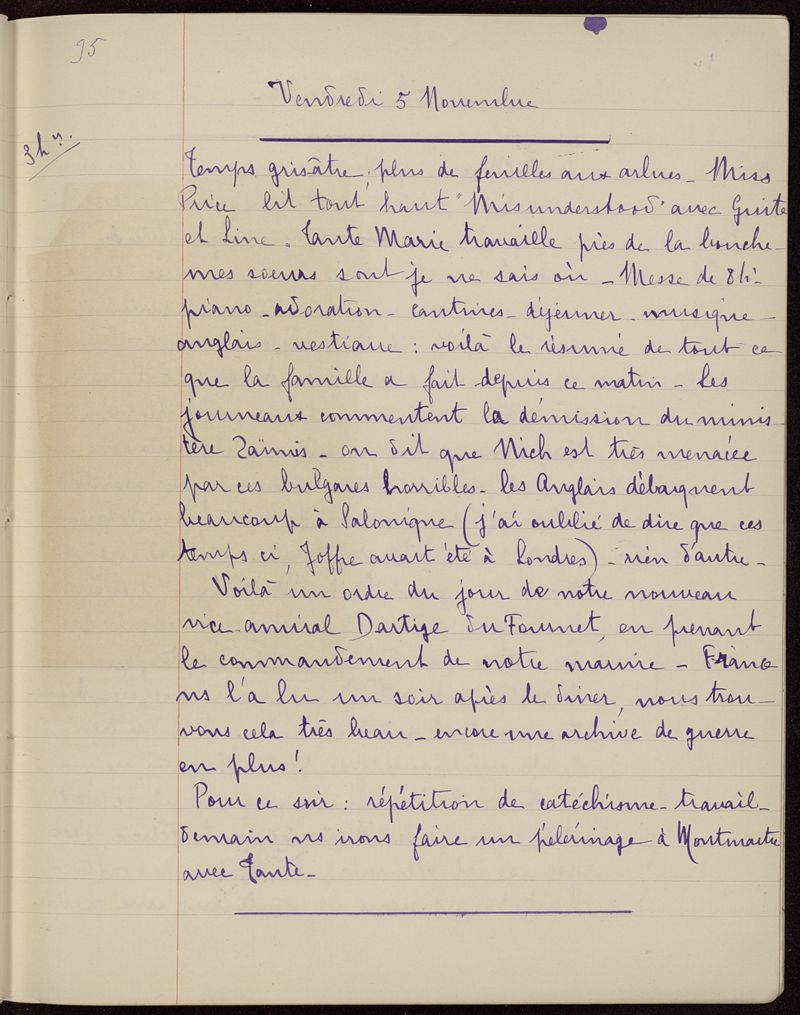 95
Vendredi 5 Novembre
3 hrs.
Temps grisâtre, plus de feuilles aux arbres - Miss
Price lit tout haut "Misunderstood" avec Guite
et Line. Tante Marie travaille près de la bouche -
mes soeurs sont je ne sais où - Messe de 8h -
piano - adoration - cantines - déjeuner - musique -
anglais - vestiaire : voilà le résumé de tout ce
que la famille a fait depuis ce matin - Les
journeaux commentent la démission du minis-
tère Zaïmis - on dit que Nich est très menacée
par ces bulgares horribles - les Anglais débarquent
beaucoup à Salonique (j'ai oublié de dire que ces
temps ci, Joffre avait été à Londres) - rien d'autre -
Voilà un ordre du jour de notre nouveau
vice-amiral Dartige du Fournet, en prenant
le commandement de notre marine - Franc
ns l'a lu un soir après le diner, nous trou-
vons cela très beau - encore une archive de guerre
en plus !
Pour ce soir : répétition de catéchisme - travail -
demain ns irons faire un pélerinage à Montmartre
avec Tante -